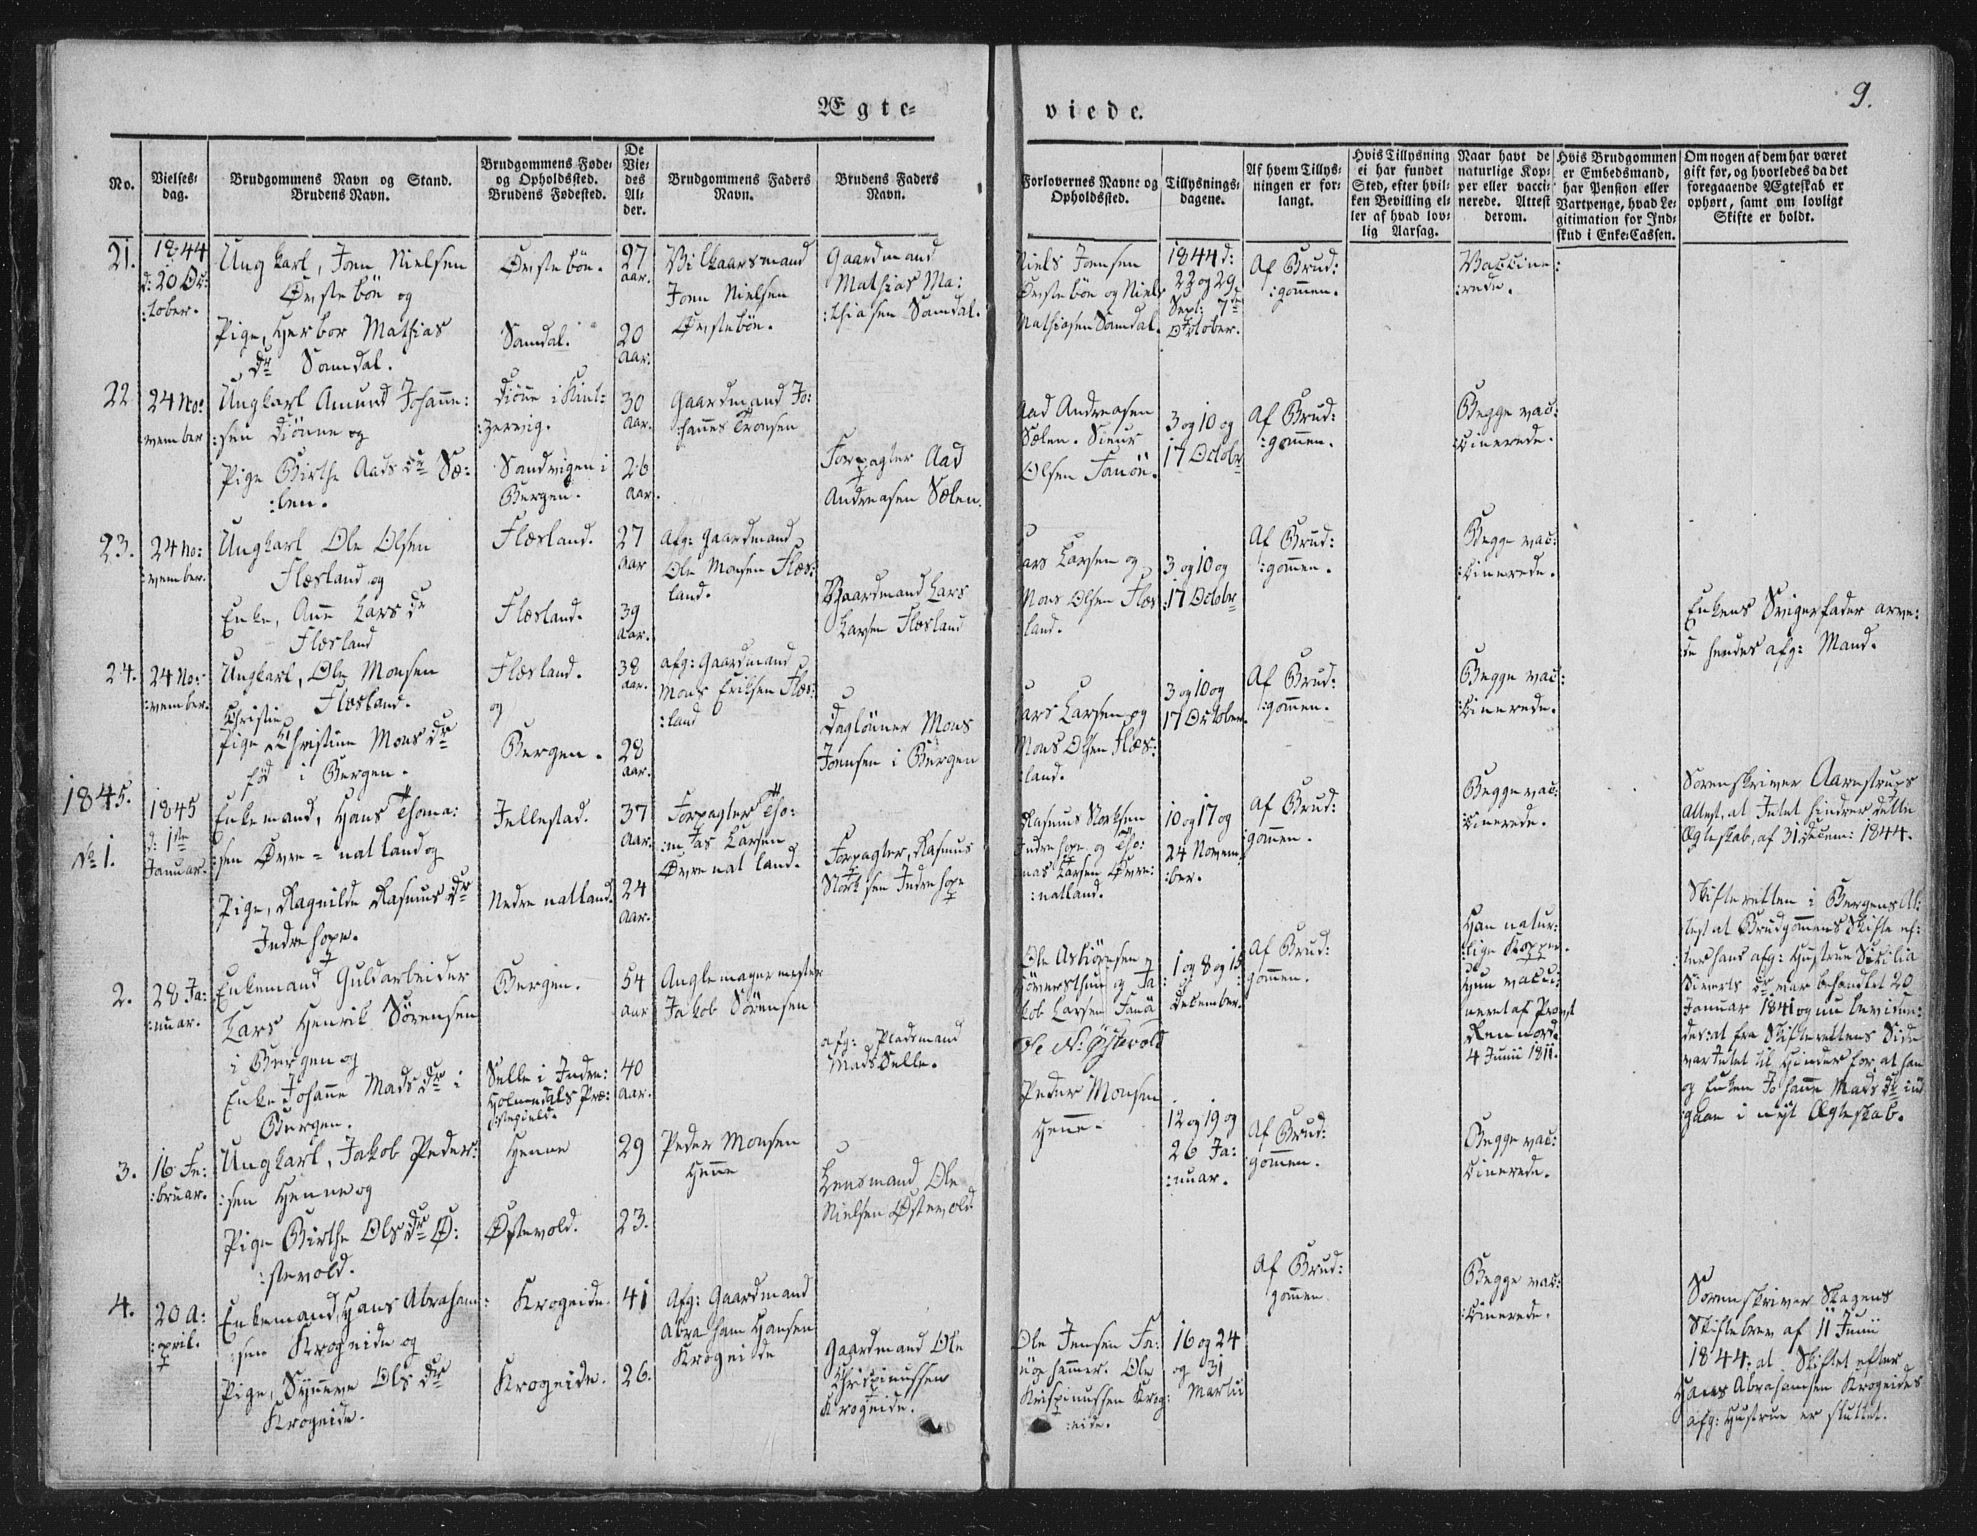 Ægte-
viede.
9.
No.
Vielses-
dag.
Brudgommens Navn og Stand.
Brudens Navn.
Brudgommens Føde-
og Opholdssted.
Brudens Fødested.
De
Vie-
des
Al-
der.
Brudgommens Faders
Navn.
Brudens Faders
Navn.
Forlovernes Navne og
Opholdssted.
Tillysnings-
dagene.
Af hvem Tillys-
ningen er for-
langt.
Hvis Tillysning
ei har fundet
Sted, efter hvil-
ken Bevilling el-
ler af hvad lov-
lig Aarsag.
Naar havt de
naturlige Kop-
per eller vacci-
nerede. Attest
derom.
Hvis Brudgommen
er Embedsmand,
har Pension eller
Vartpenge, hvad Le-
gitimation for Ind-
skud i Enke-Cassen.
Om nogen af dem har været
gift før, og hvorledes da det
foregaaende Ægteskab er
ophørt, samt om lovligt
Skifte er holdt.
21.
1844
d: 20 Oc:
:tober.
Ungkarl, Jonn Nielsen
Øvstebön og
Pige, Herbor Mathias
dr Samdal.
Øvstebön.
Samdal.
27
aar.
20
aar.
Vilkaarsmand
Jonn Nielsen
Øvstebön.
Gaardmand
Mathias Ma:
:thiasen Samdal.
Niels Jonsen
Øvstebön og Niels
Mathiasen Samdal.
1844 d:
22 og 29
Sept: 7de
October.
Af Brud:
:gommen.
Vaccine:
:rede.
22.
24 No:
:vember
Ungkarl Amund Johanne:
:sen Diönne og
Pige Birthe Aads dr Sæ:
:len.
Diönne i Kint:
:zervig.
Sandvigen i
Bergen.
30
aar.
26
aar.
Gaardmand Jo:
:hannes Tronsen
Forpagter Aad
Andreasen Sælen.
Aad Andreasen
Sælen. Siur
Olsen Fanön.
3 og 10 og
17 Octobr
Af Brud:
:gommen.
Begge vac:
:cinerede.
23.
24 No:
:vember.
Ungkarl Ole Olsen
Flæsland og
Enke, Anne Lars dr
Flæsland
Flæsland.
Flæsland.
27
aar
39
aar.
afg: Gaardmand
Ole Monsen Flæs:
land.
Gaardmand Lars
Larsen Flæsland
Lars Larsen og
Mons Olsen Flæs
:land.
3 og 10 og
:17 Octobr
Af Brud:
:gommen.
Begge vac:
:cinerede.
Enkens Svigerfader arve:
:de hendes afg: Mand.
24.
24 No:
:vember.
Ungkarl, Ole Monsen
Flæsland.
Christin
Pige Christine Mons dr
fød i Bergen.
Flæsland.
og
Bergen.
38
aar.
28
aar.
afg: Gaardmand
Mons Eriksen Flæs:
:land
Daglönner Mons
Jonnsen i Bergen
Lars Larsen og
Mons Olsen Flæs:
:land.
3 og 10 og
17 October.
Af Brud:
:gommen.
Begge vac:
:cinerede.
1845.
No 1.
1845
d: 1ste
Januar.
Enkemand, Hans Thoma:
:sen Øvre-natland og
Pige, Ragnilde Rasmus dr
Indrehope.
Jellestad.
Nedre natland.
37
aar.
24
aar.
Forpagter Tho:
:mas Larsen
Øvre natland.
Forpagter, Rasmus
Stork sen Indrehope
Rasmus Storksen
Indrehope og Tho:
mas Larsen Øvre:
:natland.
10 og 17 og
24 Novem
:ber.
Af Brud:
gommen.
Begge vac:
:cinerede.
Sorenskriver Aarestrups
Attest, at Intet hindrer dette
Ægteskab, af 31 Decem: 1844.
2.
28 Ja:
:nuar.
Enkemand Guldarbeider
Lars Henrik Sörensen
i Bergen og
Enke Johanne Mads dr i
Bergen.
Bergen.
Selle i Indre:
Holmedals Præ:
:stegield.
54
aar
40
aar.
Anglemagermester
Jakob Sörensen
afg: Pladsmand
Mads Selle.
Ole Asbiörnsen
og Ja:
kob Larsen Fanö
1 og 8 og 15
December.
Af Brud:
gommen.
Han natur:
lige Kopper.
Hun vacci:
neret af Provst
Rennord
4 Junii 1811.
Skifteretten i Bergens At:
test at Brudgommens Skifte ef:
:ter hans afg: Hustrue Sicilia
Sieverts dr var behandlet 20
Januar 1841 og nu bevidne:
des: at fra Skifterettens Side
var Intet til Hinder for, at han
og Enken Johanne Mads dr ind
gaae i nyt Ægteskab.
3.
16 Fe:
:bruar.
Ungkarl, Jakob Peder:
:sen Henne og
Pige Birthe Ols dr Ø:
:stevold.
Henne
Østevold.
29
23.
Peder Monsen
Henne
Lensmand Ole
Nielsen Østevold
Ole N: Östevold
Peder Monsen
Henne.
12 og 19 og
26 Ja:
:nuar.
Af Brud:
gommen.
Begge vac:
:cinerede.
4.
20 A:
:pril.
Enkemand, Hans Abraham:
:sen Krogneide og
Pige, Synneve Ols dr
Krogneide.
Krogeide.
Krogeide.
41
26.
Afg: Gaardmand
Abraham Hansen
Krogneide
Gaardmand Ole
Chrispinussen
Krogneide.
Ole Jensen Fa:
Ole
Krispinussen Krog:
:neide.
16 og 24
og 31
Martii
Af Brud:
gommen.
Begge vac:
:cinerede.
Sorenskriver Hagens
Skiftebrev af 11 Junii
1844, at Skiftet efter
Hans Abrahamsen Krogneides
afg: Hustrue er sluttet.